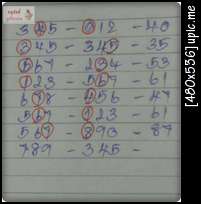 345 - 612 - 40
345 - 345 - 35
567 - 234 - 53
123 - 567 - 61
678 - 456 - 47
567 - 123 - 61
567 - 890 - 87
789 - 345 -
[480x536] upic.me